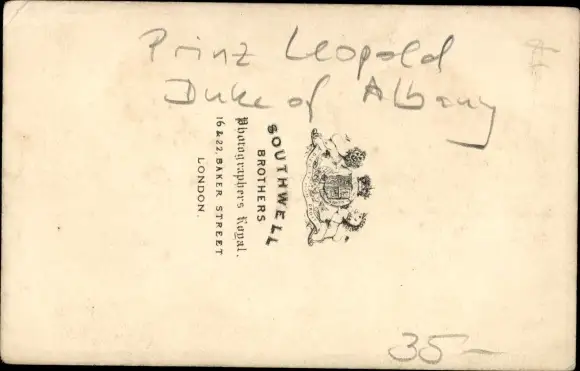 Prinz Leopold
Duke of Albany
SOUTHWELL
BROTHERS
Photographers Royal.
16 & 22, BAKER STREET
LONDON.
35-